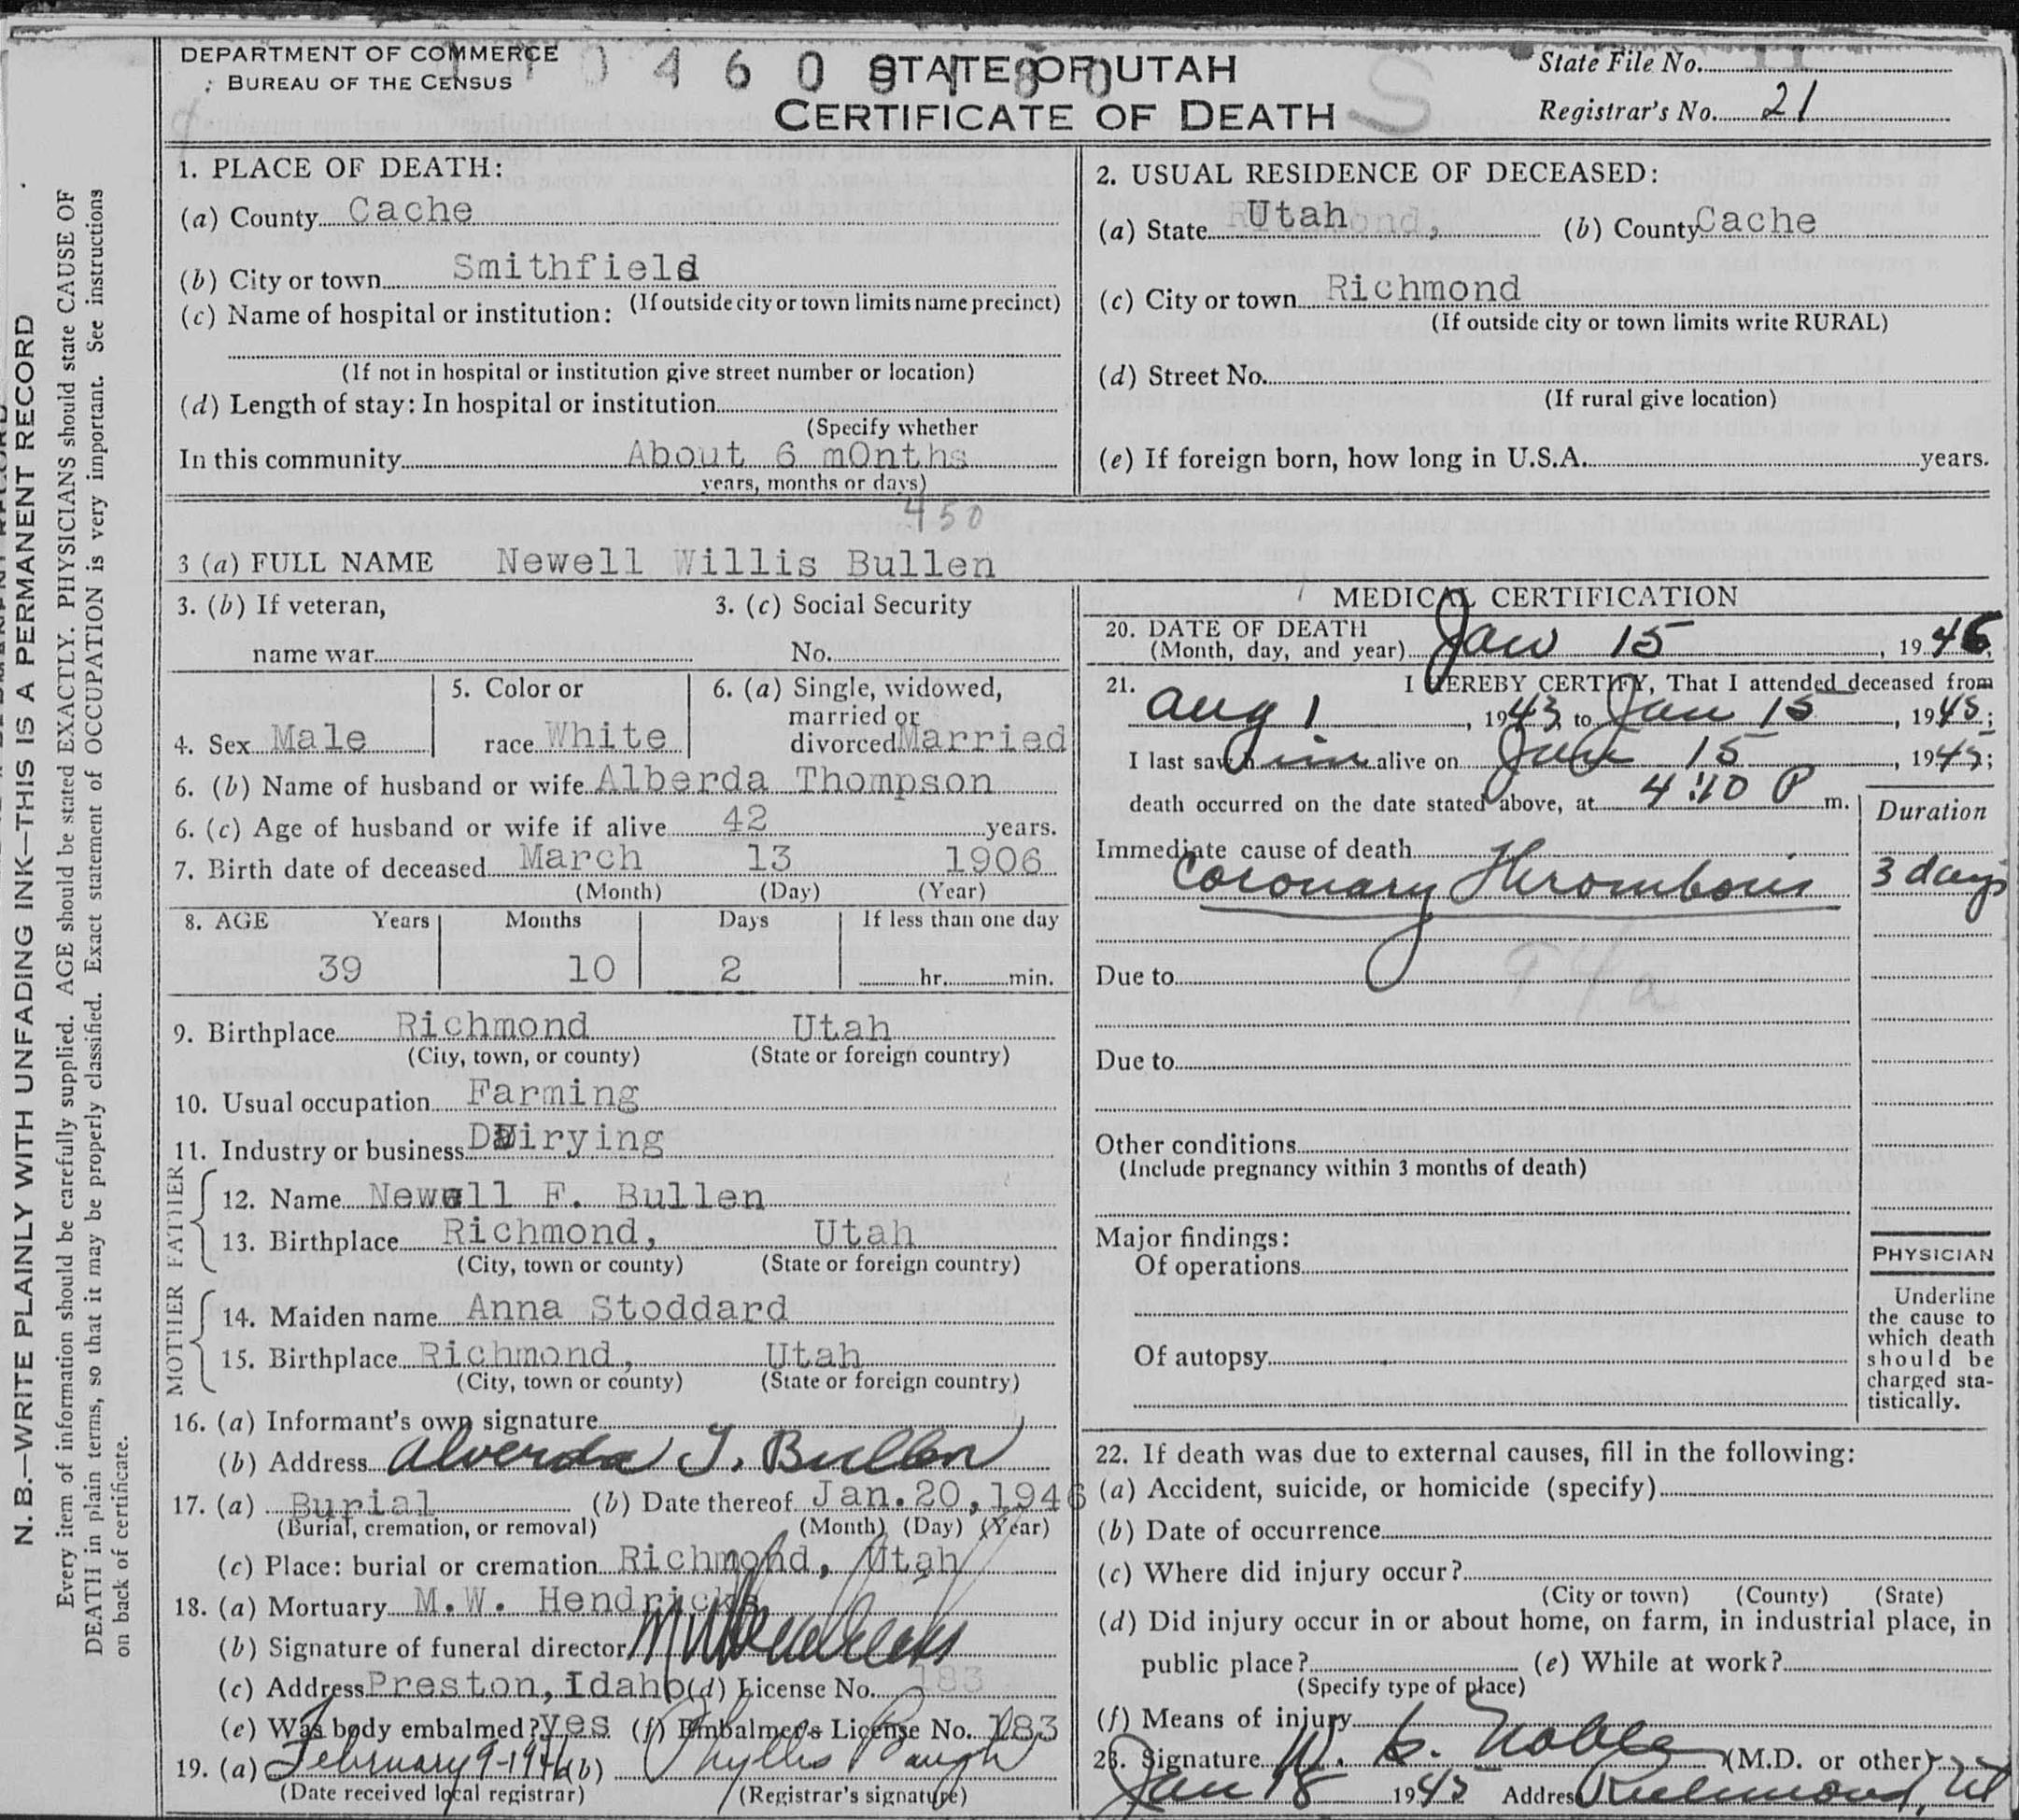 DEPARTMENT OF COMMERCE
BUREAU OF THE CENSUS
4 6 0
STATE OF UTAH
CERTIFICATE OF DEATH
S
State File No. 11
Registrar's No. 21
N. B.—WRITE PLAINLY WITH UNFADING INK—THIS IS A PERMANENT RECORD
Every item of information should be carefully supplied. AGE should be stated EXACTLY. PHYSICIANS should state CAUSE OF
DEATH in plain terms, so that it may be properly classified. Exact statement of OCCUPATION is very important. See instructions
on back of certificate.
1. PLACE OF DEATH:
(a) County Cache
(b) City or town Smithfield
(If outside city or town limits name precinct)
(c) Name of hospital or institution:
(If not in hospital or institution give street number or location)
(d) Length of stay: In hospital or institution
(Specify whether
In this community About 6 mOnths
years, months or days)
2. USUAL RESIDENCE OF DECEASED:
(a) State Utah (b) County Cache
(c) City or town Richmond
(If outside city or town limits write RURAL)
(d) Street No.
(If rural give location)
(e) If foreign born, how long in U.S.A. years.
450
3 (a) FULL NAME Newell Willis Bullen
3. (b) If veteran,
name war
3. (c) Social Security
No.
4. Sex Male
5. Color or
race White
6. (a) Single, widowed,
married or
divorced Married
6. (b) Name of husband or wife Alberda Thompson
6. (c) Age of husband or wife if alive 42 years.
7. Birth date of deceased March 13 1906
(Month) (Day) (Year)
8. AGE Years Months Days If less than one day
39 10 2 hr. min.
9. Birthplace Richmond Utah
(City, town, or county) (State or foreign country)
10. Usual occupation Farming
11. Industry or business Dairying
FATHER
12. Name Newell F. Bullen
13. Birthplace Richmond, Utah
(City, town or county) (State or foreign country)
MOTHER
14. Maiden name Anna Stoddard
15. Birthplace Richmond, Utah
(City, town or county) (State or foreign country)
16. (a) Informant's own signature
(b) Address Alverda T. Bullen
17. (a) Burial (b) Date thereof Jan. 20, 1946
(Burial, cremation, or removal) (Month) (Day) (Year)
(c) Place: burial or cremation Richmond, Utah
18. (a) Mortuary M.W. Hendricks
(b) Signature of funeral director MW Hendricks
(c) Address Preston, Idaho (d) License No. 183
(e) Was body embalmed? yes (f) Embalmer's License No. 183
19. (a) February 9-1946 (b) Phyllis Baugh
(Date received local registrar) (Registrar's signature)
MEDICAL CERTIFICATION
20. DATE OF DEATH
(Month, day, and year) Jan 15, 1946
21. I HEREBY CERTIFY, That I attended deceased from
Aug 1, 1943, to Jan 15, 1945;
I last saw him alive on June 15, 1945;
death occurred on the date stated above, at 4:10 P m.
Duration
Immediate cause of death
Coronary Thrombosis 3 days
94a
Due to
Due to
Other conditions
(Include pregnancy within 3 months of death)
Major findings:
Of operations
Of autopsy
PHYSICIAN
Underline
the cause to
which death
should be
charged sta-
tistically.
22. If death was due to external causes, fill in the following:
(a) Accident, suicide, or homicide (specify)
(b) Date of occurrence
(c) Where did injury occur?
(City or town) (County) (State)
(d) Did injury occur in or about home, on farm, in industrial place, in
public place? (e) While at work?
(Specify type of place)
(f) Means of injury
23. Signature Noble (M.D. or other)
Jan 18 1945 Address Richmond, Ut